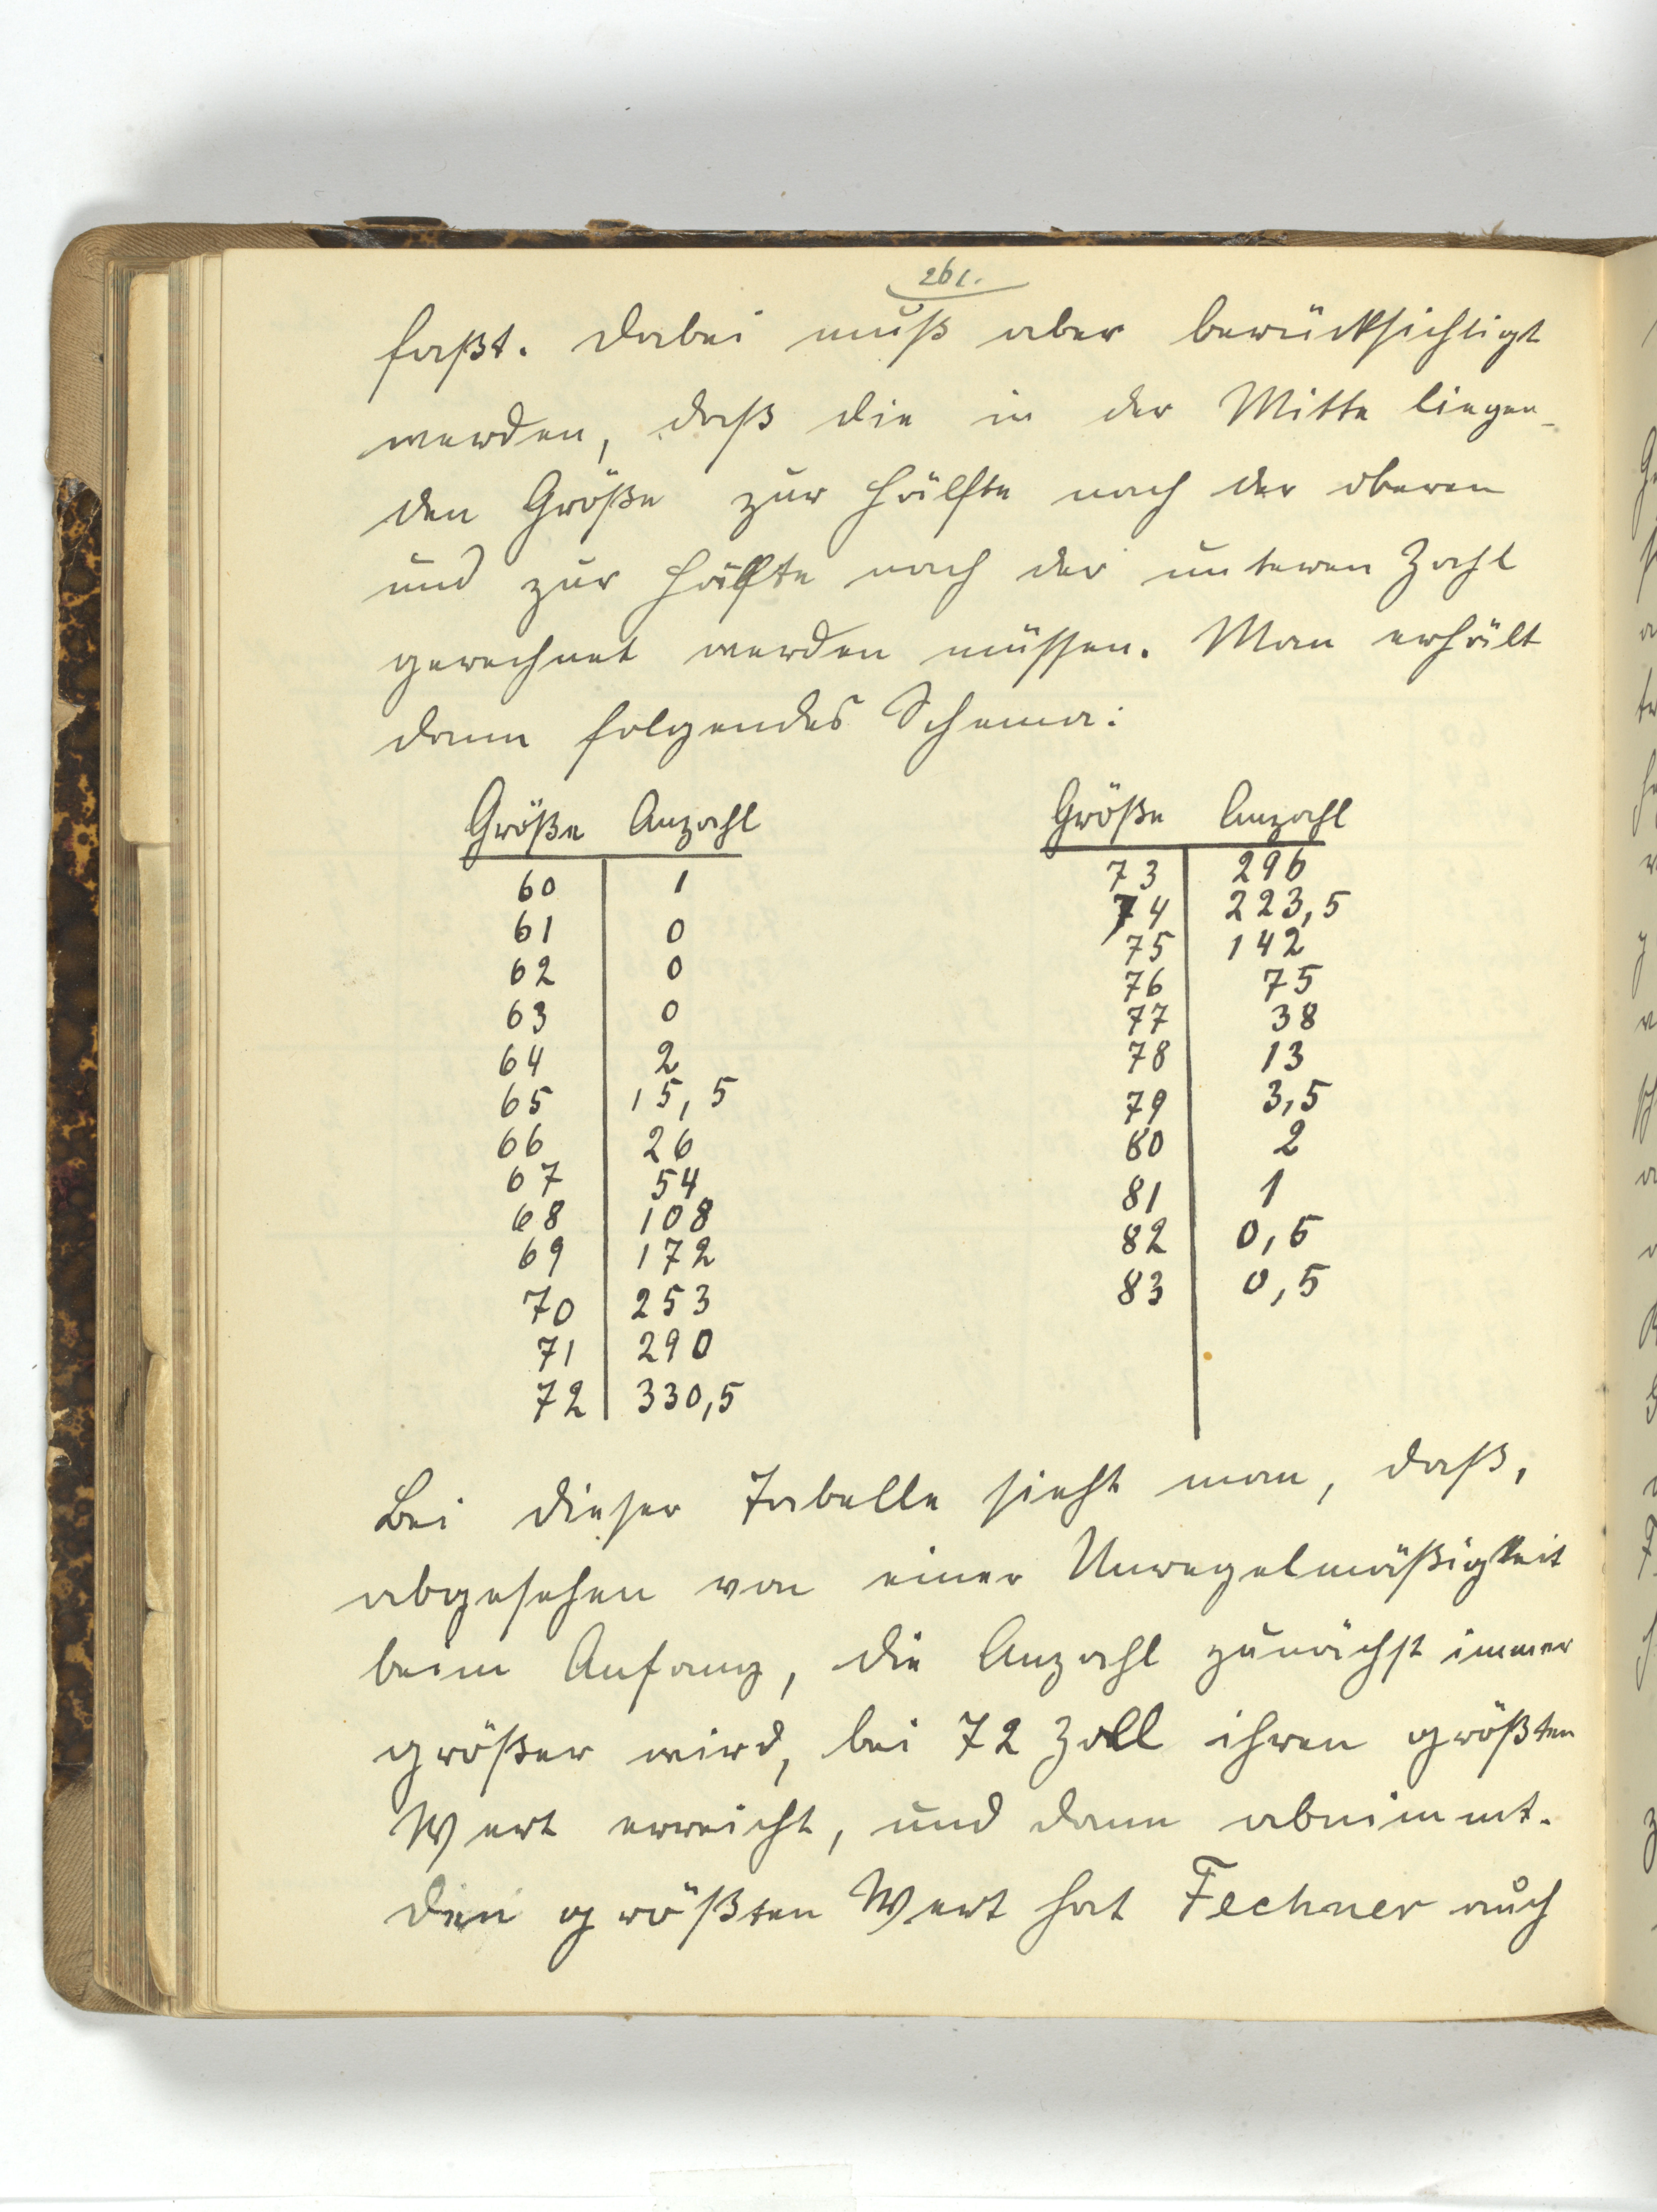 261.
faßt. Dabei muß aber berücksichtigt
werden, daß die in der Mitte liegen-
den Größe zur Hälfte nach der oberen
und zur Hälfte nach der unteren Zahl
gerechnet werden müssen. Man erhält
dann folgendes Schema:
Größe Anzahl
60 1
61 0
62 0
63 0
64 2
65 15,5
66 26
67 54
68 108
69 172
70 253
71 290
72 330,5
Größe Anzahl
73 296
74 223,5
75 142
76 75
77 38
78 13
79 3,5
80 2
81 1
82 0,5
83 0,5
Bei dieser Tabelle sieht man, daß,
abgesehen von einer Unregelmäßigkeit
beim Anfang, die Anzahl zunächst immer
größer wird, bei 72 Zoll ihren größten
Wert erreicht, und dann abnimmt.
Den größten Wert hat Fechner auch